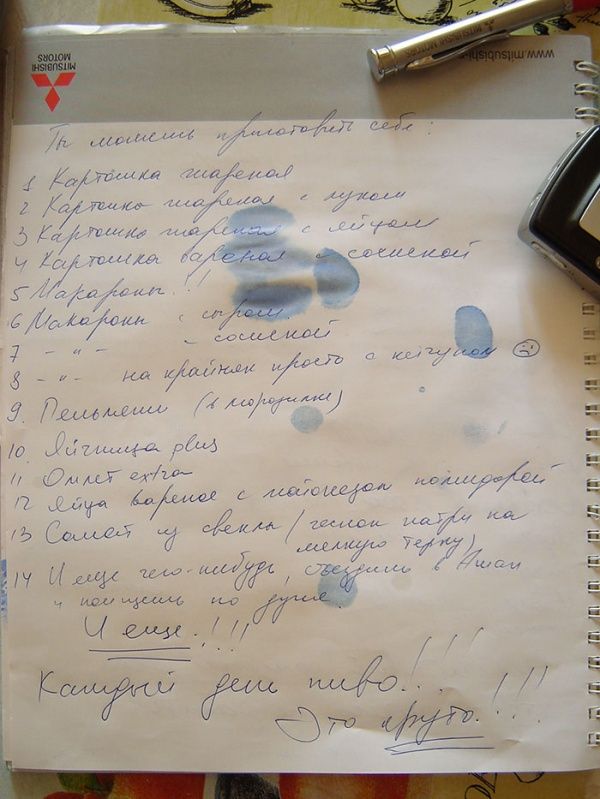 MITSUBISHI
MOTORS
MITSUBISHI MOTORS
www.mitsubishi-
Ты можешь приготовить себе:
1 Картошка жареная
2 Картошка жареная с луком
3 Картошка жареная с яйцом
4 Картошка вареная с сосиской
5 Макароны!!
6 Макароны с сыром
7 -"- с сосиской
8 -"- на крайняк просто с кетчупом ☹
9. Пельмени (в морозилке)
10. Яичница plus
11 Омлет extra
12 Яйца вареное с майонезом помидорой
13 Салат из свеклы (чеснок натри на
мелкую терку)
14 И еще чего-нибудь, съездишь в Ашан
и поищешь по душе.
И еще!!!
Каждый день пиво...!!!
Это круто!!!